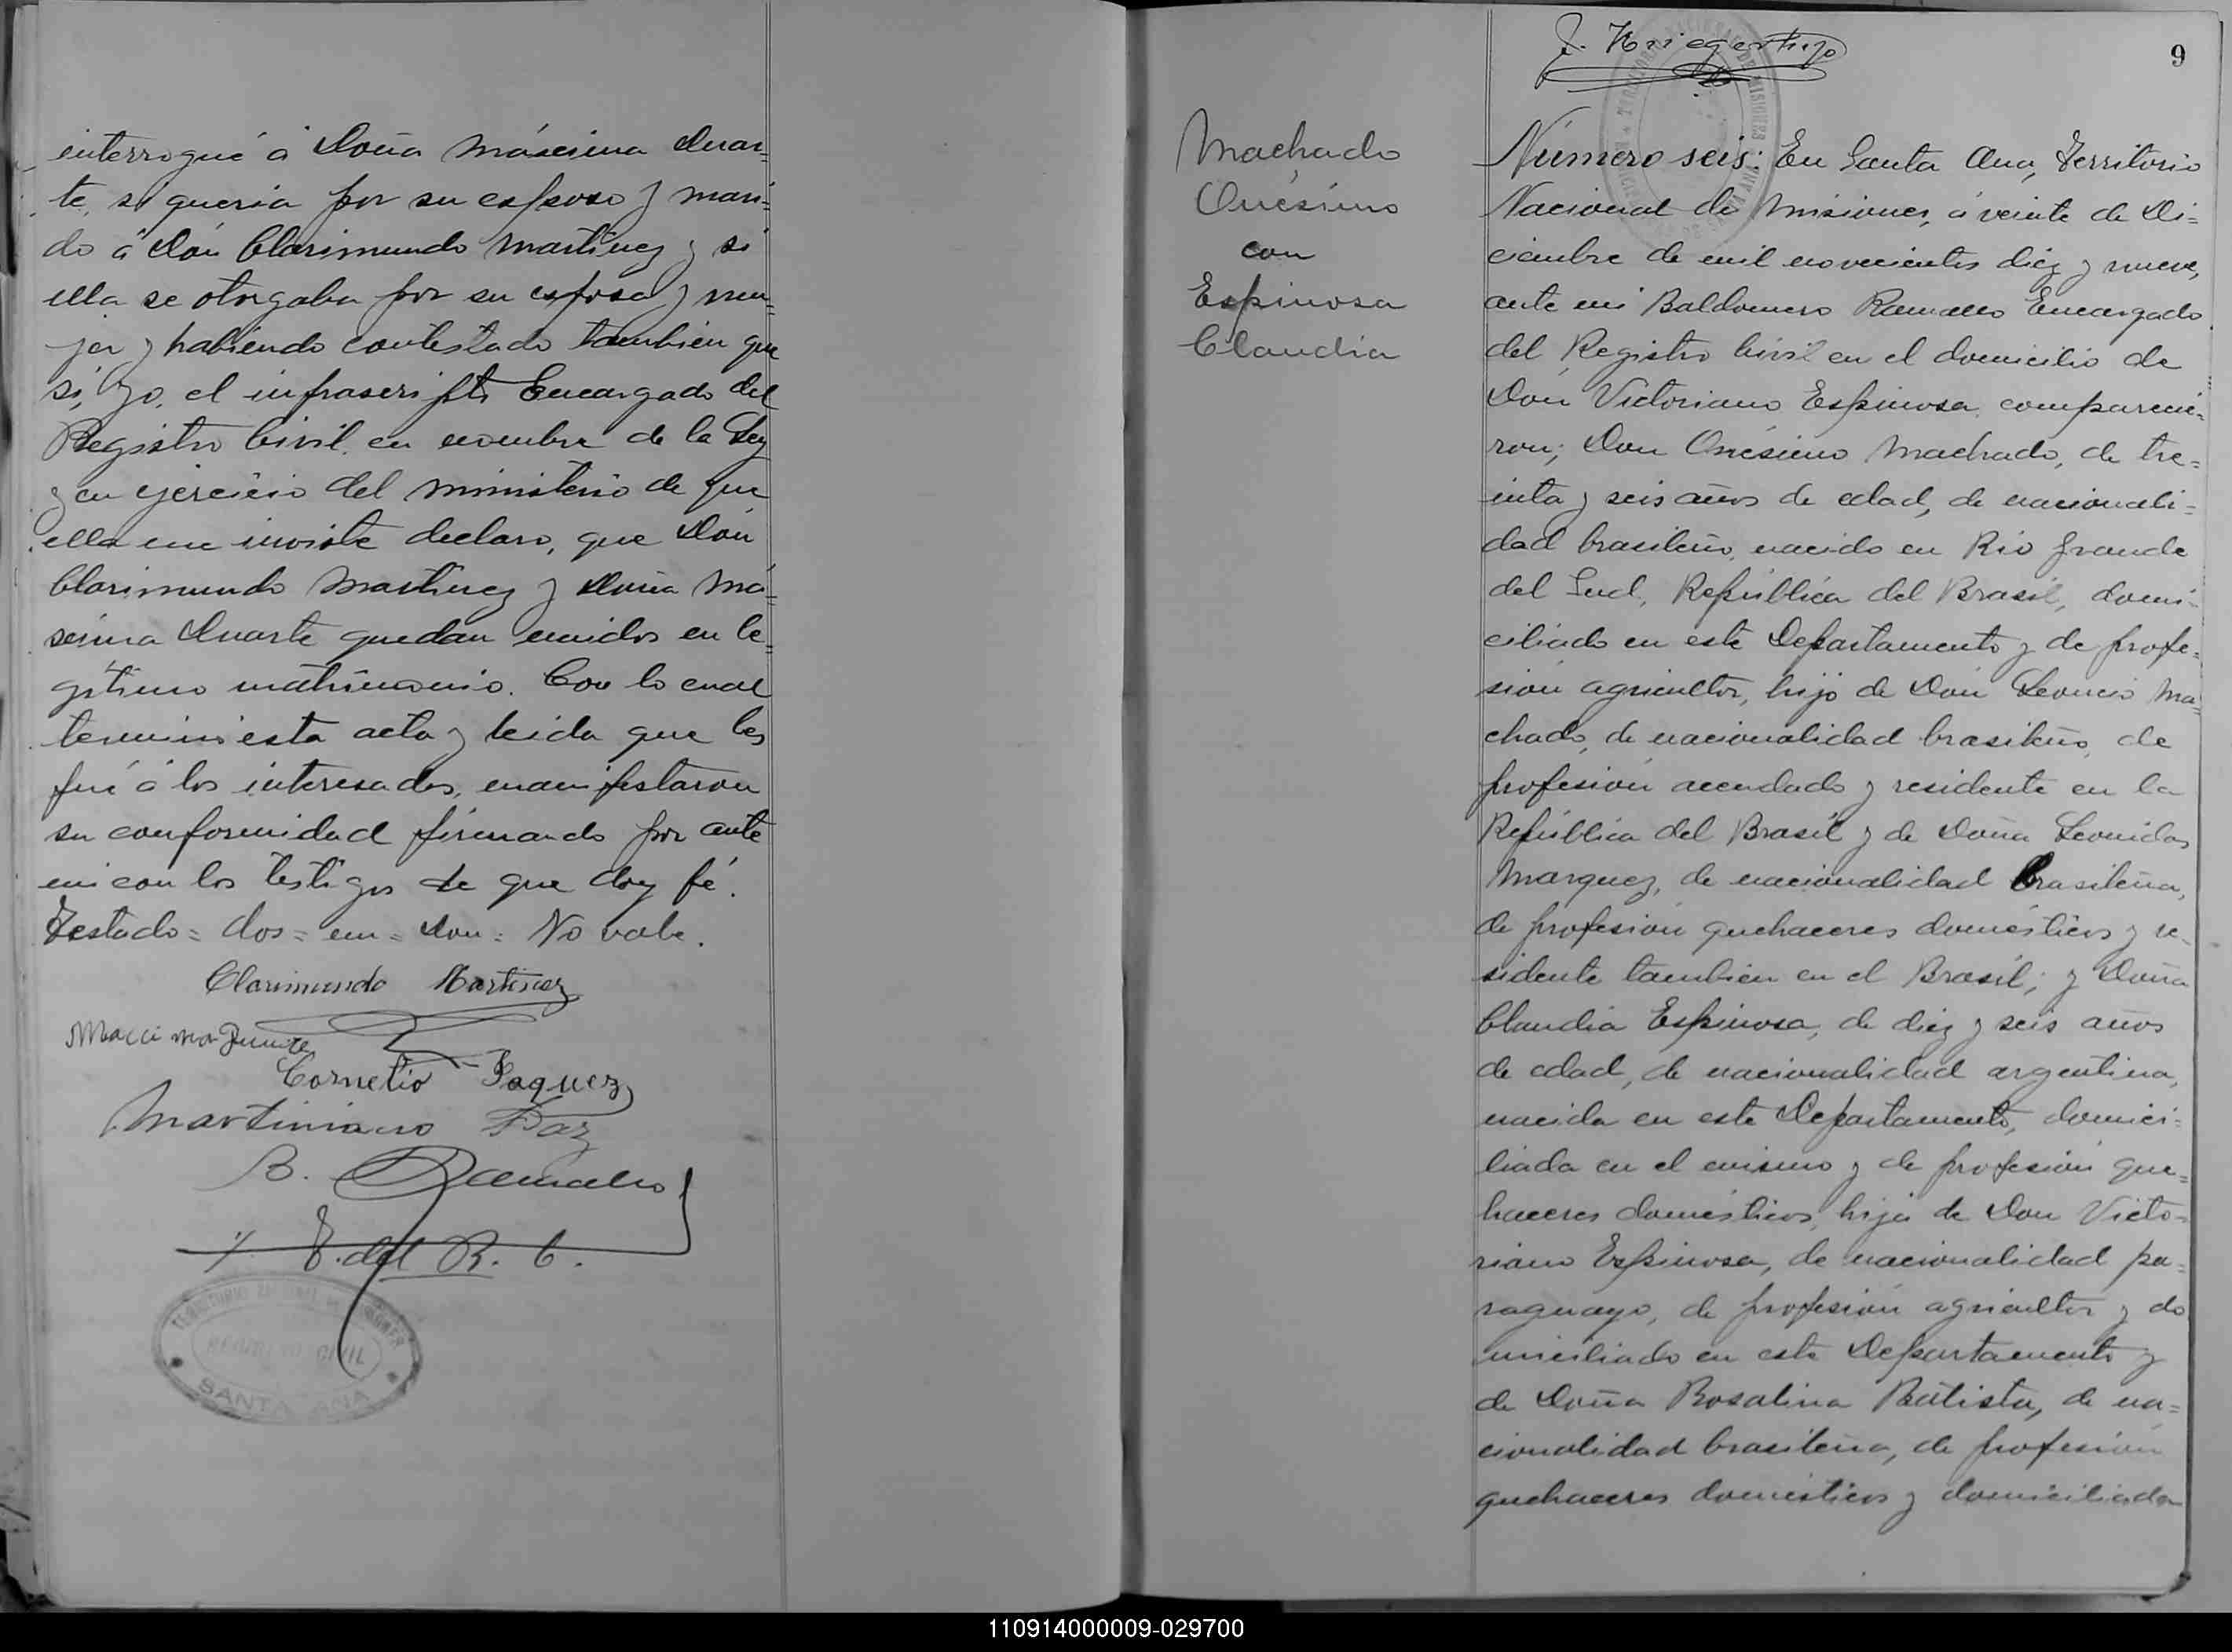 interrogué á Doña Máscima Duar=
te, si queria por su esposo y mari=
do á Dón Clarimundo Martinez y si
ella se otorgaba por su esposa y mu=
jer y habiendo contestado tambien que
si, yo, el infrascripto Encargado del
Registro Civil en nombre de la Ley
y en ejercicio del ministerio de que
ella me inviste declaro, que Dón
Clarimundo Martinez y Doña Má=
scima Duarte quedan unidos en le=
gítimo matrimonio. Con lo cual
terminó esta acta y leida que les
fué á los interesados, manifestaron
su conformidad firmando por ante
mi con los testigos de que doy fé.
Testado = dos = em = Don = No vale.
Clarimundo Martinez
Maccima Duarte
Cornelio Vaquez
Martiniano Paz
B. Ramallo
E. del R. C.
TERRITORIO NACIONAL DE MISIONES
REGISTRO CIVIL
SANTA ANA
J. Krieger hijo
9
Machado
Onésimo
con
Espinosa
Claudia
Número seis: En Santa Ana, Territorio
Nacional de Misiones, á veinte de Di=
ciembre de mil novecientos diez y nueve,
ante mi Baldomero Ramallo Encargado
del Registro Civil en el domicilio de
Dón Victoriano Espinosa, comparecie=
ron; Don Onésimo Machado, de tre=
inta y seis años de edad, de nacionali=
dad brasileño, nacido en Rio Grande
del Sud, República del Brasil, domi=
ciliado en este Departamento y de profe=
sión agricultor, hijo de Dón Leoncio Ma=
chado, de nacionalidad brasileño, de
profesión acendado y residente en la
República del Brasil y de Doña Leonidas
Marquez, de nacionalidad brasileña,
de profesión quehaceres domésticos y re=
sidente tambien en el Brasil; y Doña
Claudia Espinosa, de diez y seis años
de edad, de nacionalidad argentina,
nacida en este Departamento, domici=
liada en el mismo y de profesión que=
haceres domésticos, hija de Don Victo=
riano Espinosa, de nacionalidad pa=
raguayo, de profesión agricultor y do
miciliado en este Departamento y
de Doña Rosalina Batista, de na=
cionalidad brasileña, de profesión
quehaceres domésticos y domiciliada
110914000009-029700